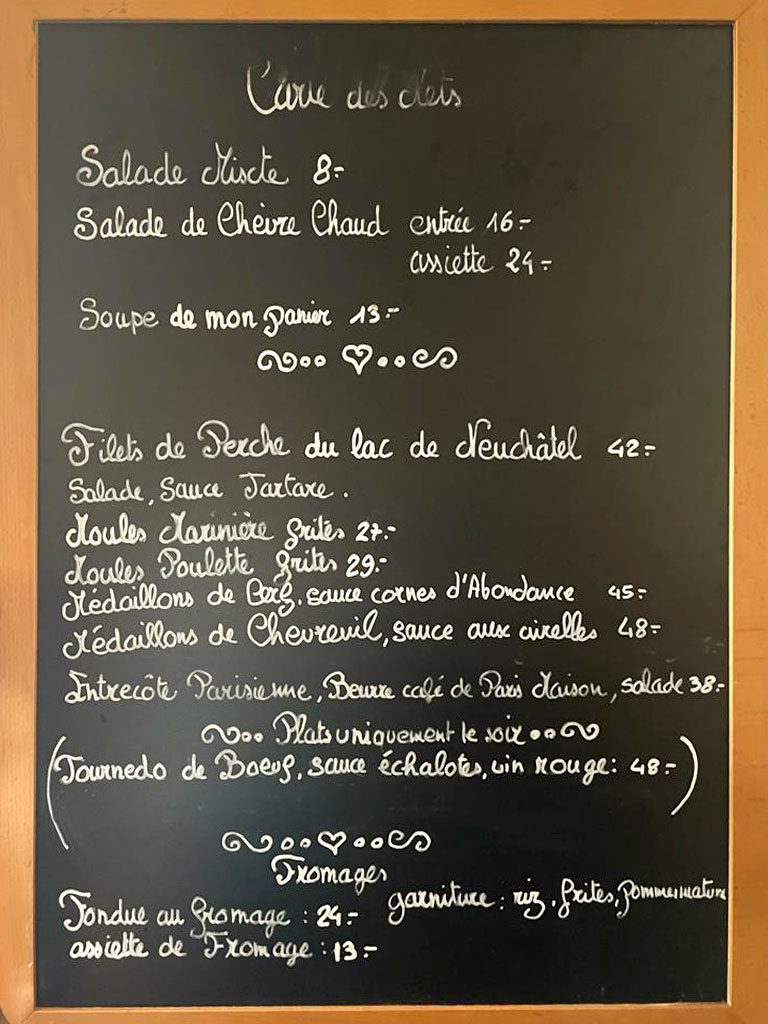 Carte des Mets
Salade Mixte 8.-
Salade de Chèvre Chaud entrée 16.-
assiette 24.-
Soupe de mon panier 13.-
Filets de Perche du lac de Neuchâtel 42.-
Salade, Sauce Tartare.
Moules Marinière frites 27.-
Moules Poulette frites 29.-
Médaillons de Cerf, sauce cornes d'Abondance 45.-
Médaillons de Chevreuil, sauce aux airelles 48.-
Entrecôte Parisienne, Beurre café de Paris Maison, salade 38.-
Plats uniquement le soir
(Tournedo de Boeuf, sauce échalotes, vin rouge: 48.-)
Fromages
garniture: riz, frites, pommes nature
Fondue au fromage: 24.-
assiette de Fromage: 13.-